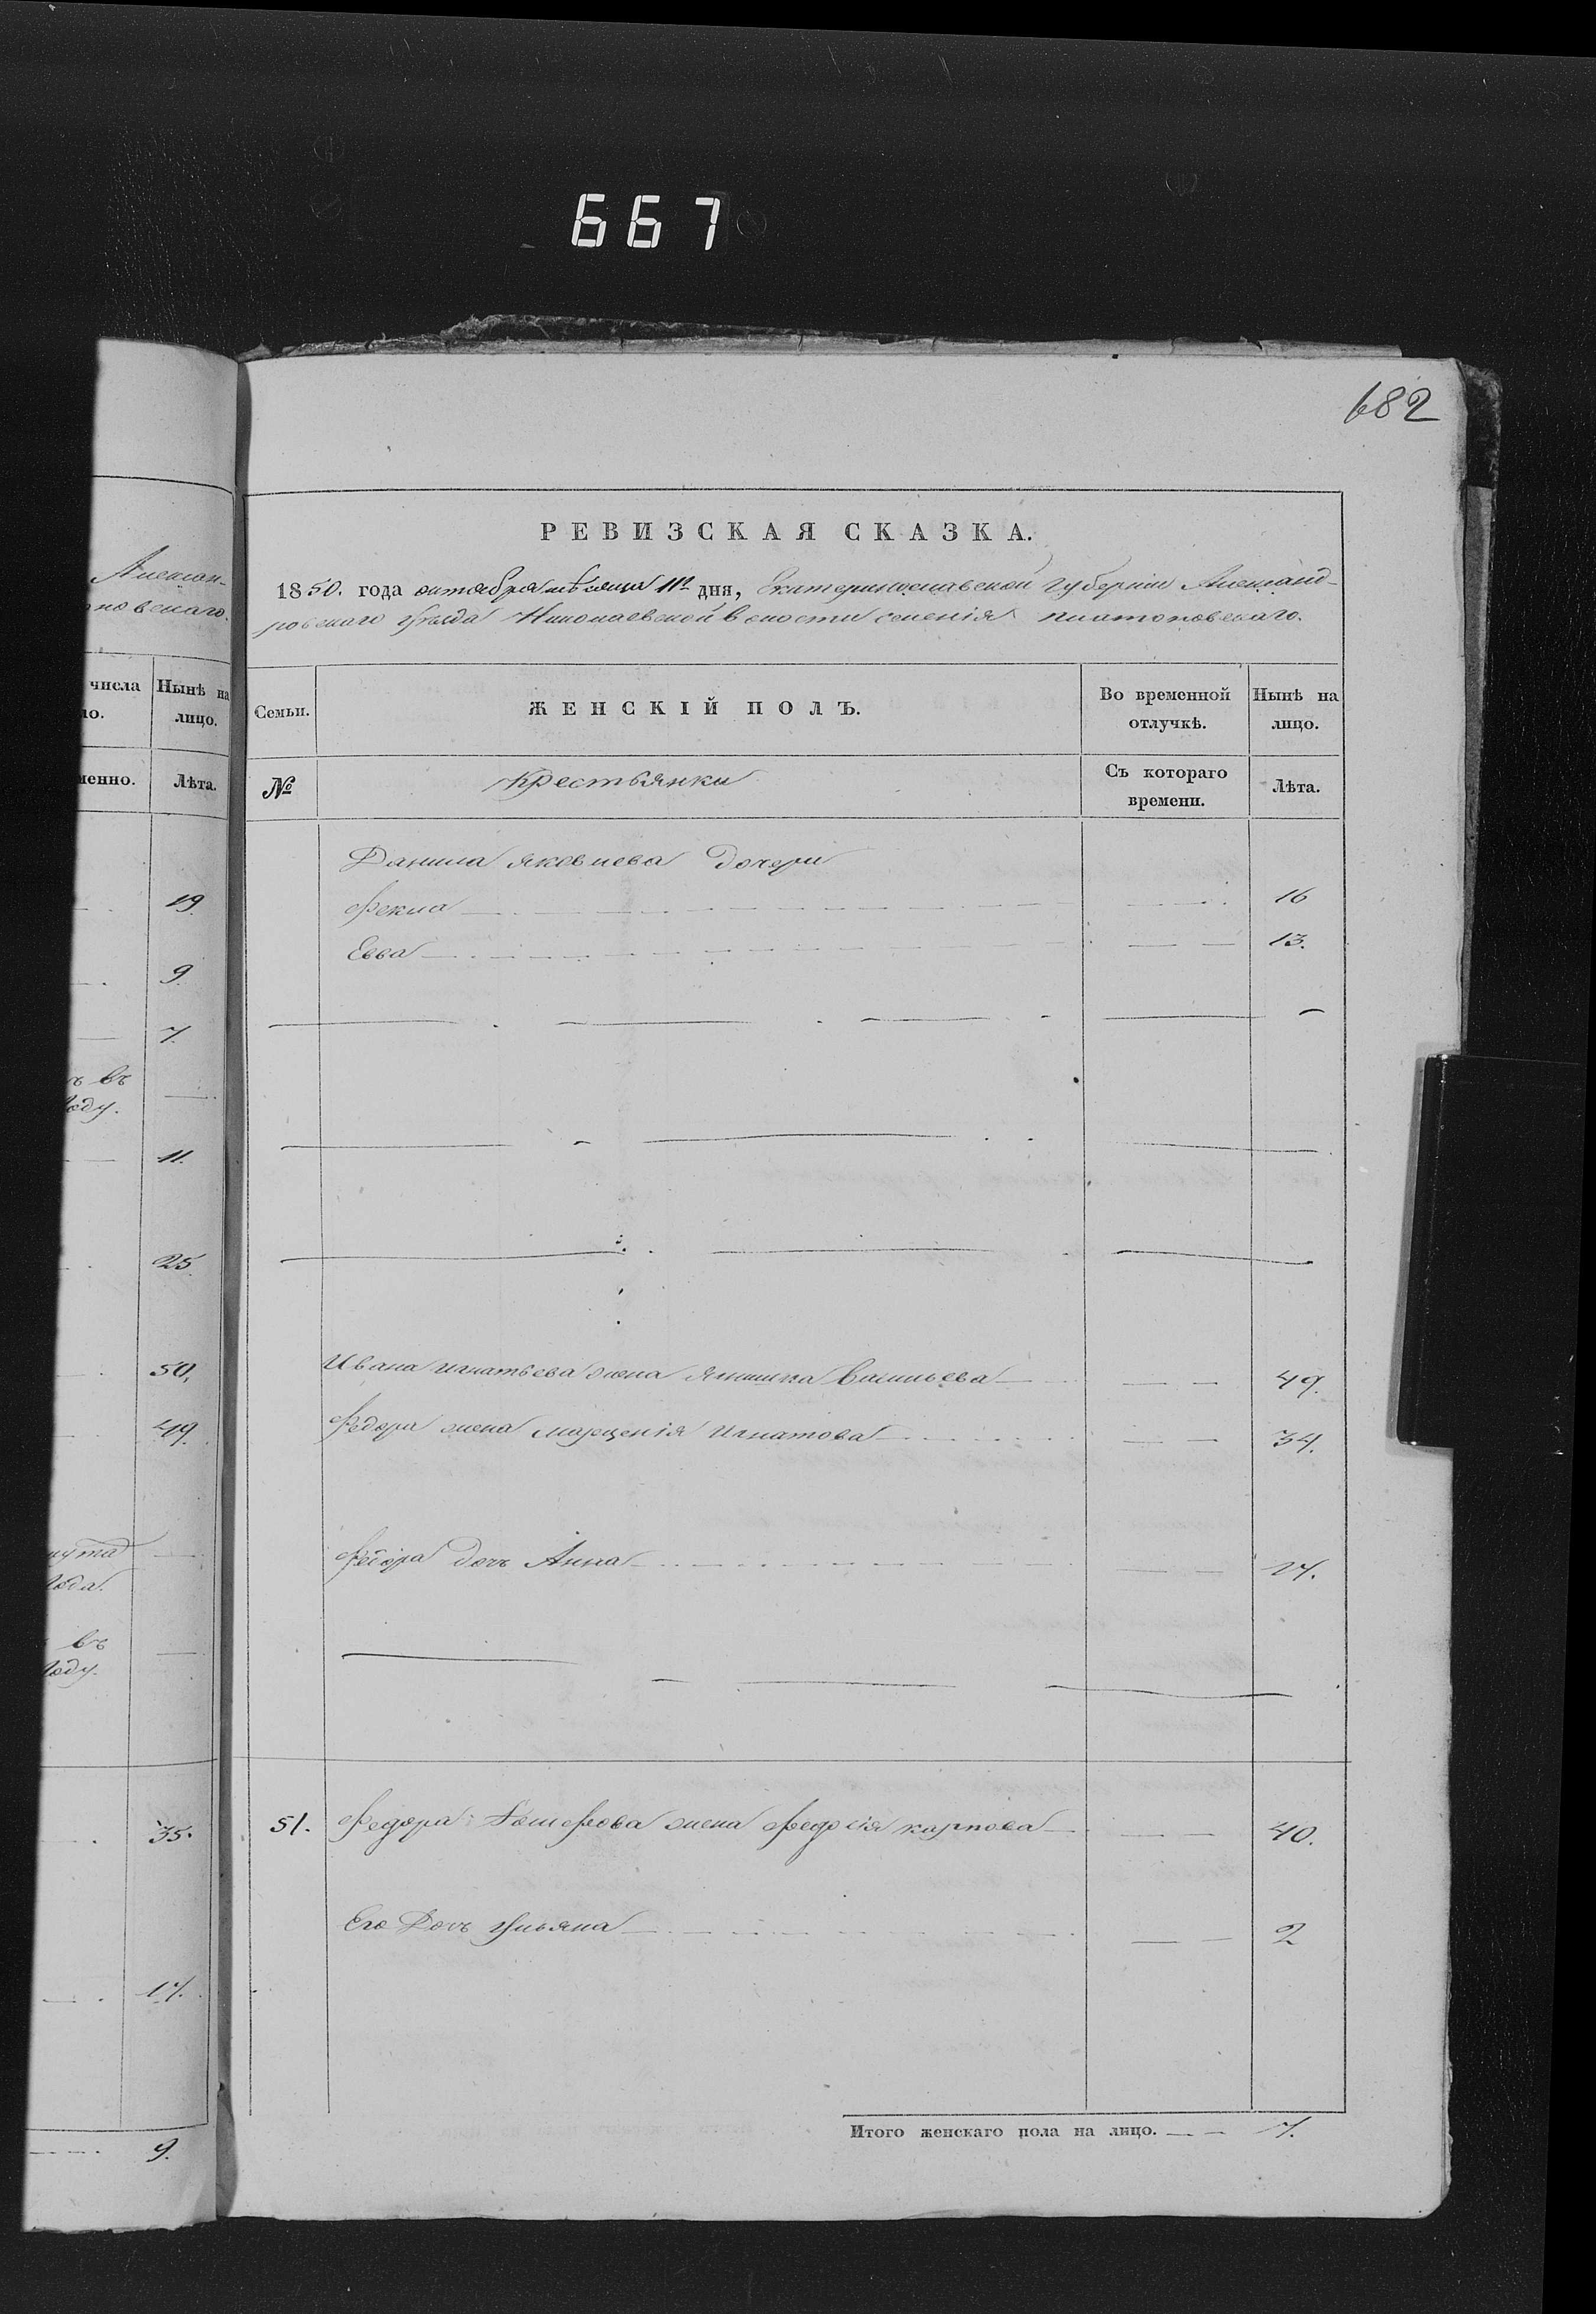 667
682
Алексан-
новскаго.
числа Нынѣ на
ло. лицо.
менно. Лѣта.
19.
9.
7.
ъ въ
году.
11.
25.
50.
49.
года.
въ
году.
35.
17.
9.
РЕВИЗСКАЯ СКАЗКА.
1850. года октября мѣсяца 11го дня, Екатеринославской губерніи Александ-
ровскаго уѣзда Николаевской волости селенія Платоновскаго.
Семьи. ЖЕНСКІЙ ПОЛЪ. Во временной отлучкѣ. Нынѣ на лицо.
№ Крестьянки Съ котораго времени. Лѣта.
Данила Яковлева дочери
Фекла 16
Евва 13.
Ивана Игнатьева жена Васильева 49.
Федора жена Игнатова 34.
Федора дочь Анна 17.
51. Федора жена Федосія Карпова 40.
Его дочь Ульяна 2
Итого женскаго пола на лицо. 7.